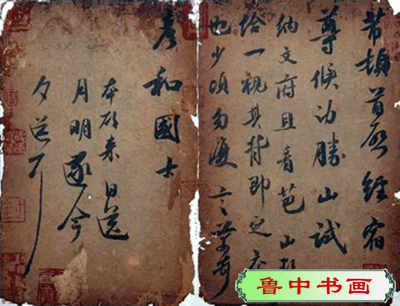 芾頓首啟經宿
尊候沖勝山試
納文府且看芭山
給一視其背即定交
也少頃勿復言芾
彥和國士
本欲來日送
月明遂今
夕送耳
魯中书画